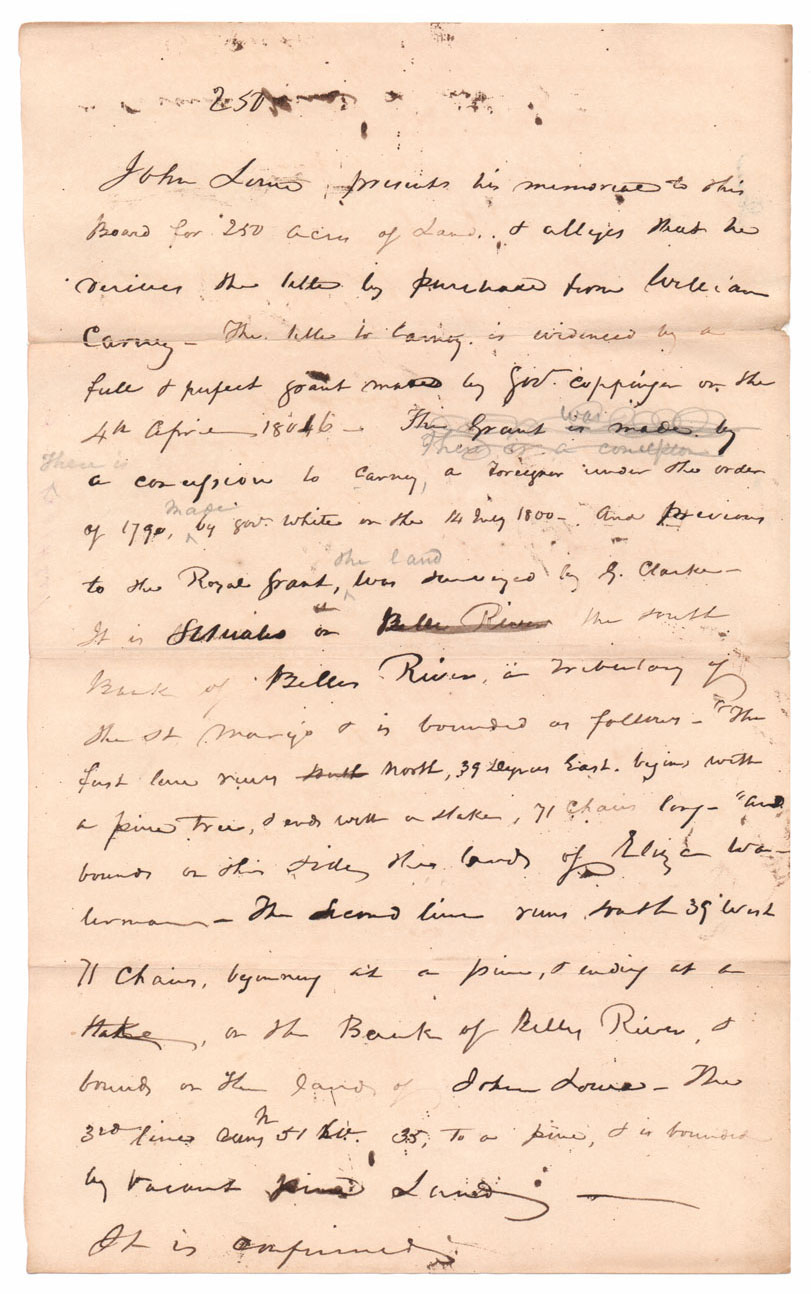 250
John Lowe, presents his memorial to this
Board for 250 acres of Land. & alleges that he
derives the title by purchase from William
Carney – The title to Carney is evidenced by a
full & perfect grant made by Gov. Coppinger on the
4th April 1816 – The Grant is made by
was
There is a concession
There is
a concession to Carney, a foreigner under the order
of 1790, by Gov. White on the 14 July 1800 – And previous
made
the land
to the Royal Grant, was surveyed by G. Clarke –
It is Situate on Bells River the south
Bank of Bells River, a tributary of
the St Marys & is bounded as follows – "The
first line runs south North, 39 Degrees East. begins with
a pine tree, & ends with a stake, 71 Chains long – "and
bounds on this side, the lands of Eliza Wa-
terman – The Second line runs, South 39 West
71 Chains, beginning at a pine, & ending at a
stake, on the Bank of Bells River, &
bounds on the lands of John Lowe – The
3rd line runs N 51 35, to a pine, & is bounded
by vacant pine Land; –
It is confirmed.